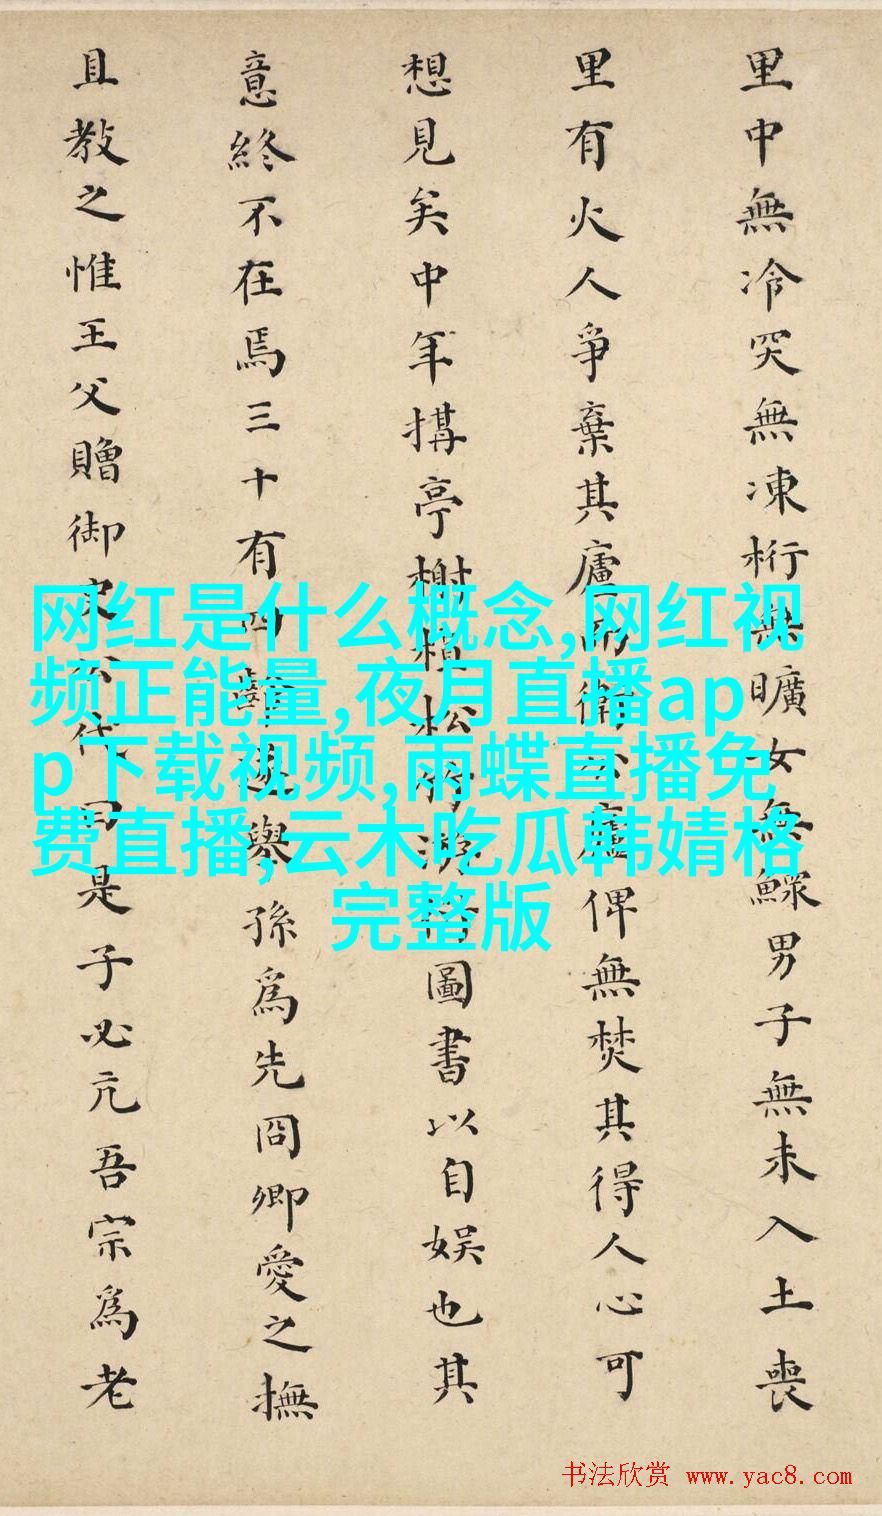 里中無冷突無凍桁無曠女無鰥男子無未入土喪
里有火人爭棄其廬而衛公廬俾無焚其得人心可
想見矣中年搆亭榭植松竹游圖書以自娱也其
意終不在焉三十有四齡遽舉孫爲先冏卿愛之撫
且教之惟王父贈御史公代曰是子必亢吾宗爲老
网红是什么概念,网红视
频正能量,夜月直播ap
p下载视频,雨蝶直播免
费直播,云木吃瓜韩婧格
完整版
书法欣赏 www.yac8.com